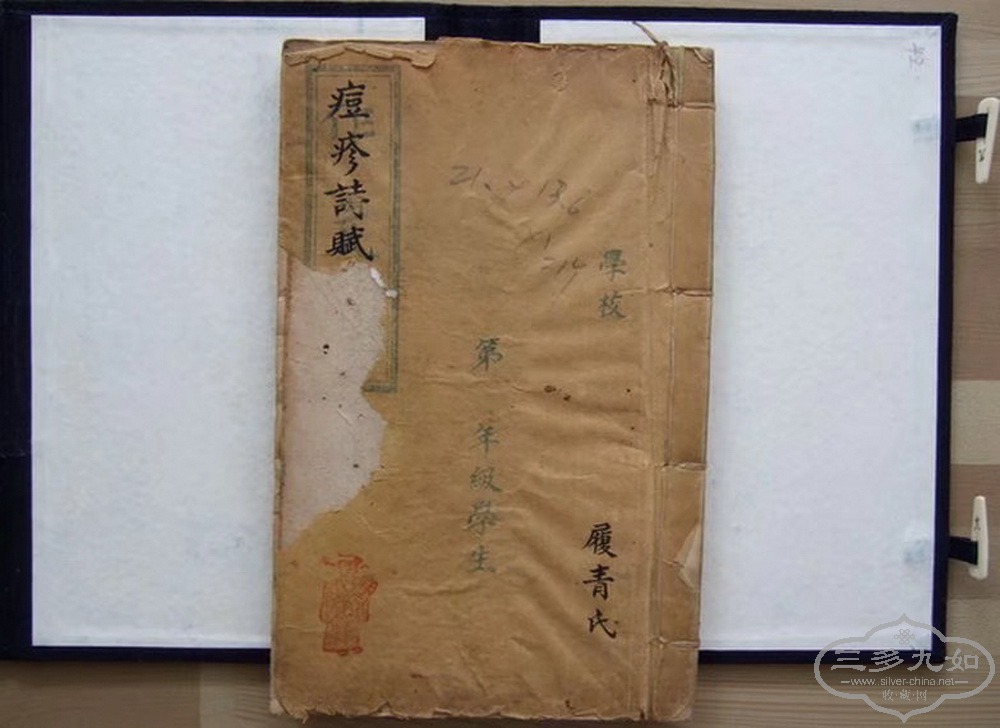 痘疹詩賦
學校
第 年級學生
履青氏
三多九如
www.silver-china.net
收藏网